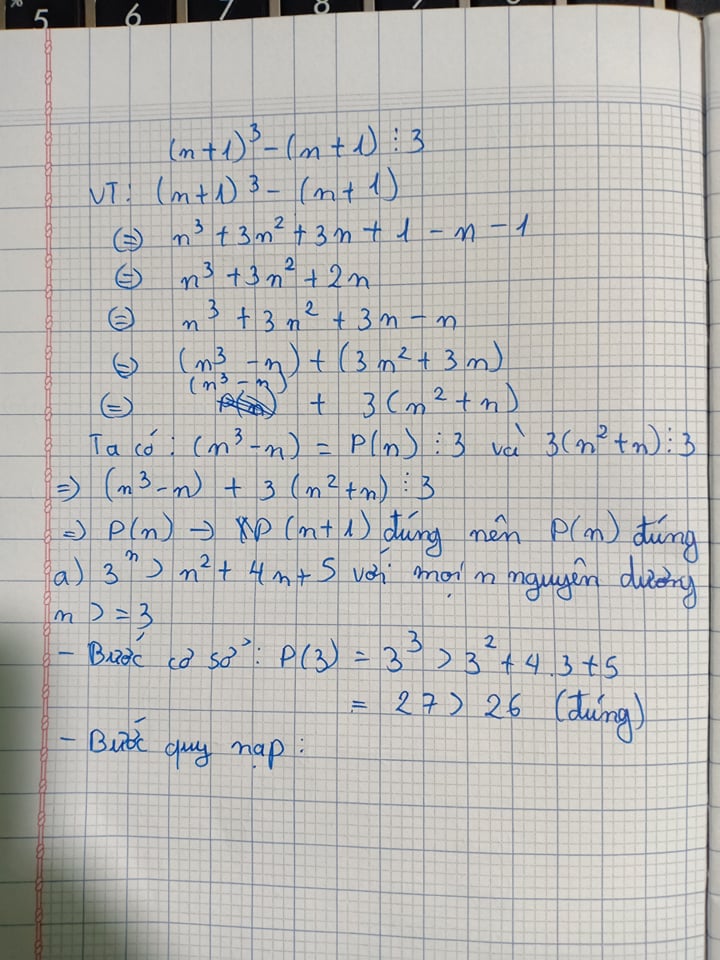 5 6 7 8
(n+1)³ - (n+1) ⋮ 3
VT: (n+1)³ - (n+1)
(=) n³ + 3n² + 3n + 1 - n - 1
(=) n³ + 3n² + 2n
(=) n³ + 3n² + 3n - n
(=) (n³ - n) + (3n² + 3n)
(=) (n³ - n) + 3(n² + n)
Ta có: (n³-n) = P(n) ⋮ 3 và 3(n²+n) ⋮ 3
=> (n³-n) + 3(n²+n) ⋮ 3
=> P(n) → P(n+1) đúng nên P(n) đúng
a) 3ⁿ > n² + 4n + 5 với mọi n nguyên dương
n >= 3
- Bước cơ sở: P(3) = 3³ > 3² + 4.3 + 5
= 27 > 26 (đúng)
- Bước quy nạp: